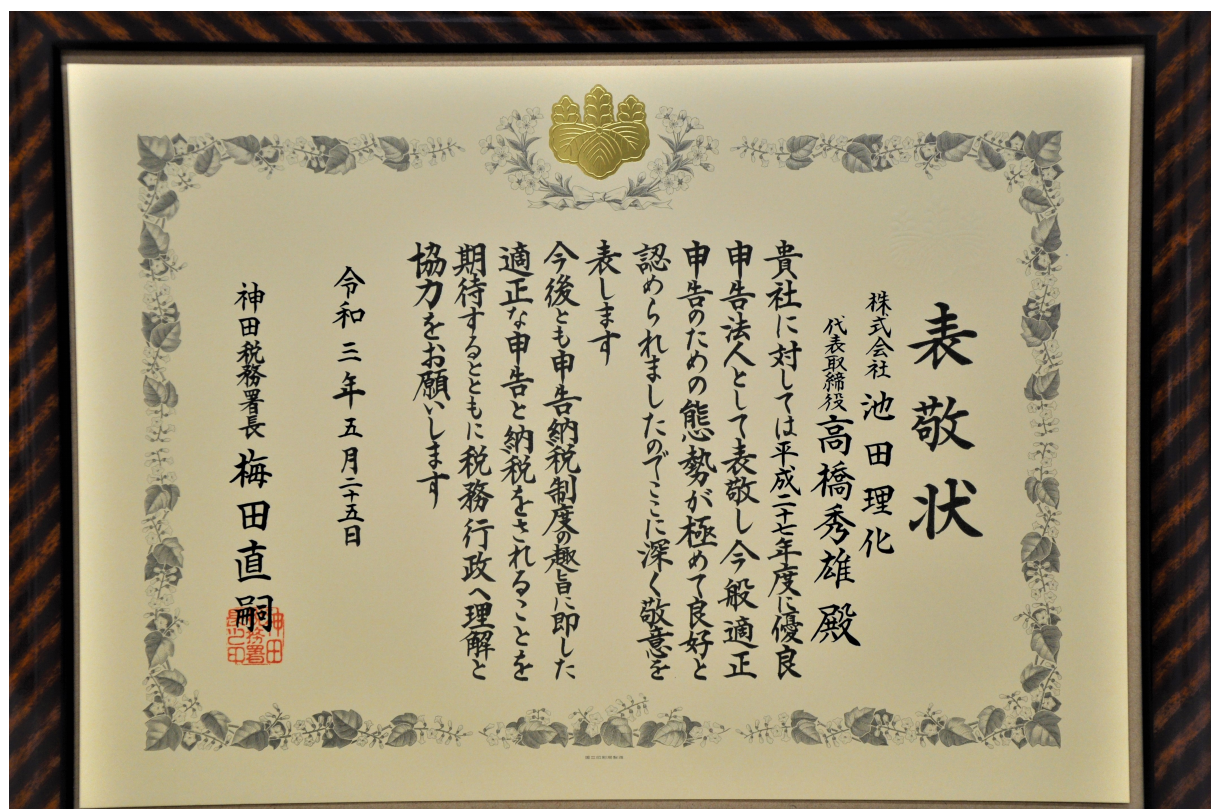 表敬状
株式会社 池田理化
代表取締役 高橋秀雄 殿
貴社に対しては平成二十七年度に優良
申告法人として表敬し今般適正
申告のための態勢が極めて良好と
認められましたのでここに深く敬意を
表します
今後とも申告納税制度の趣旨に即した
適正な申告と納税をされることを
期待するとともに税務行政へ理解と
協力をお願いします
令和三年五月二十五日
神田税務署長 梅田直嗣
神田税務署長之印